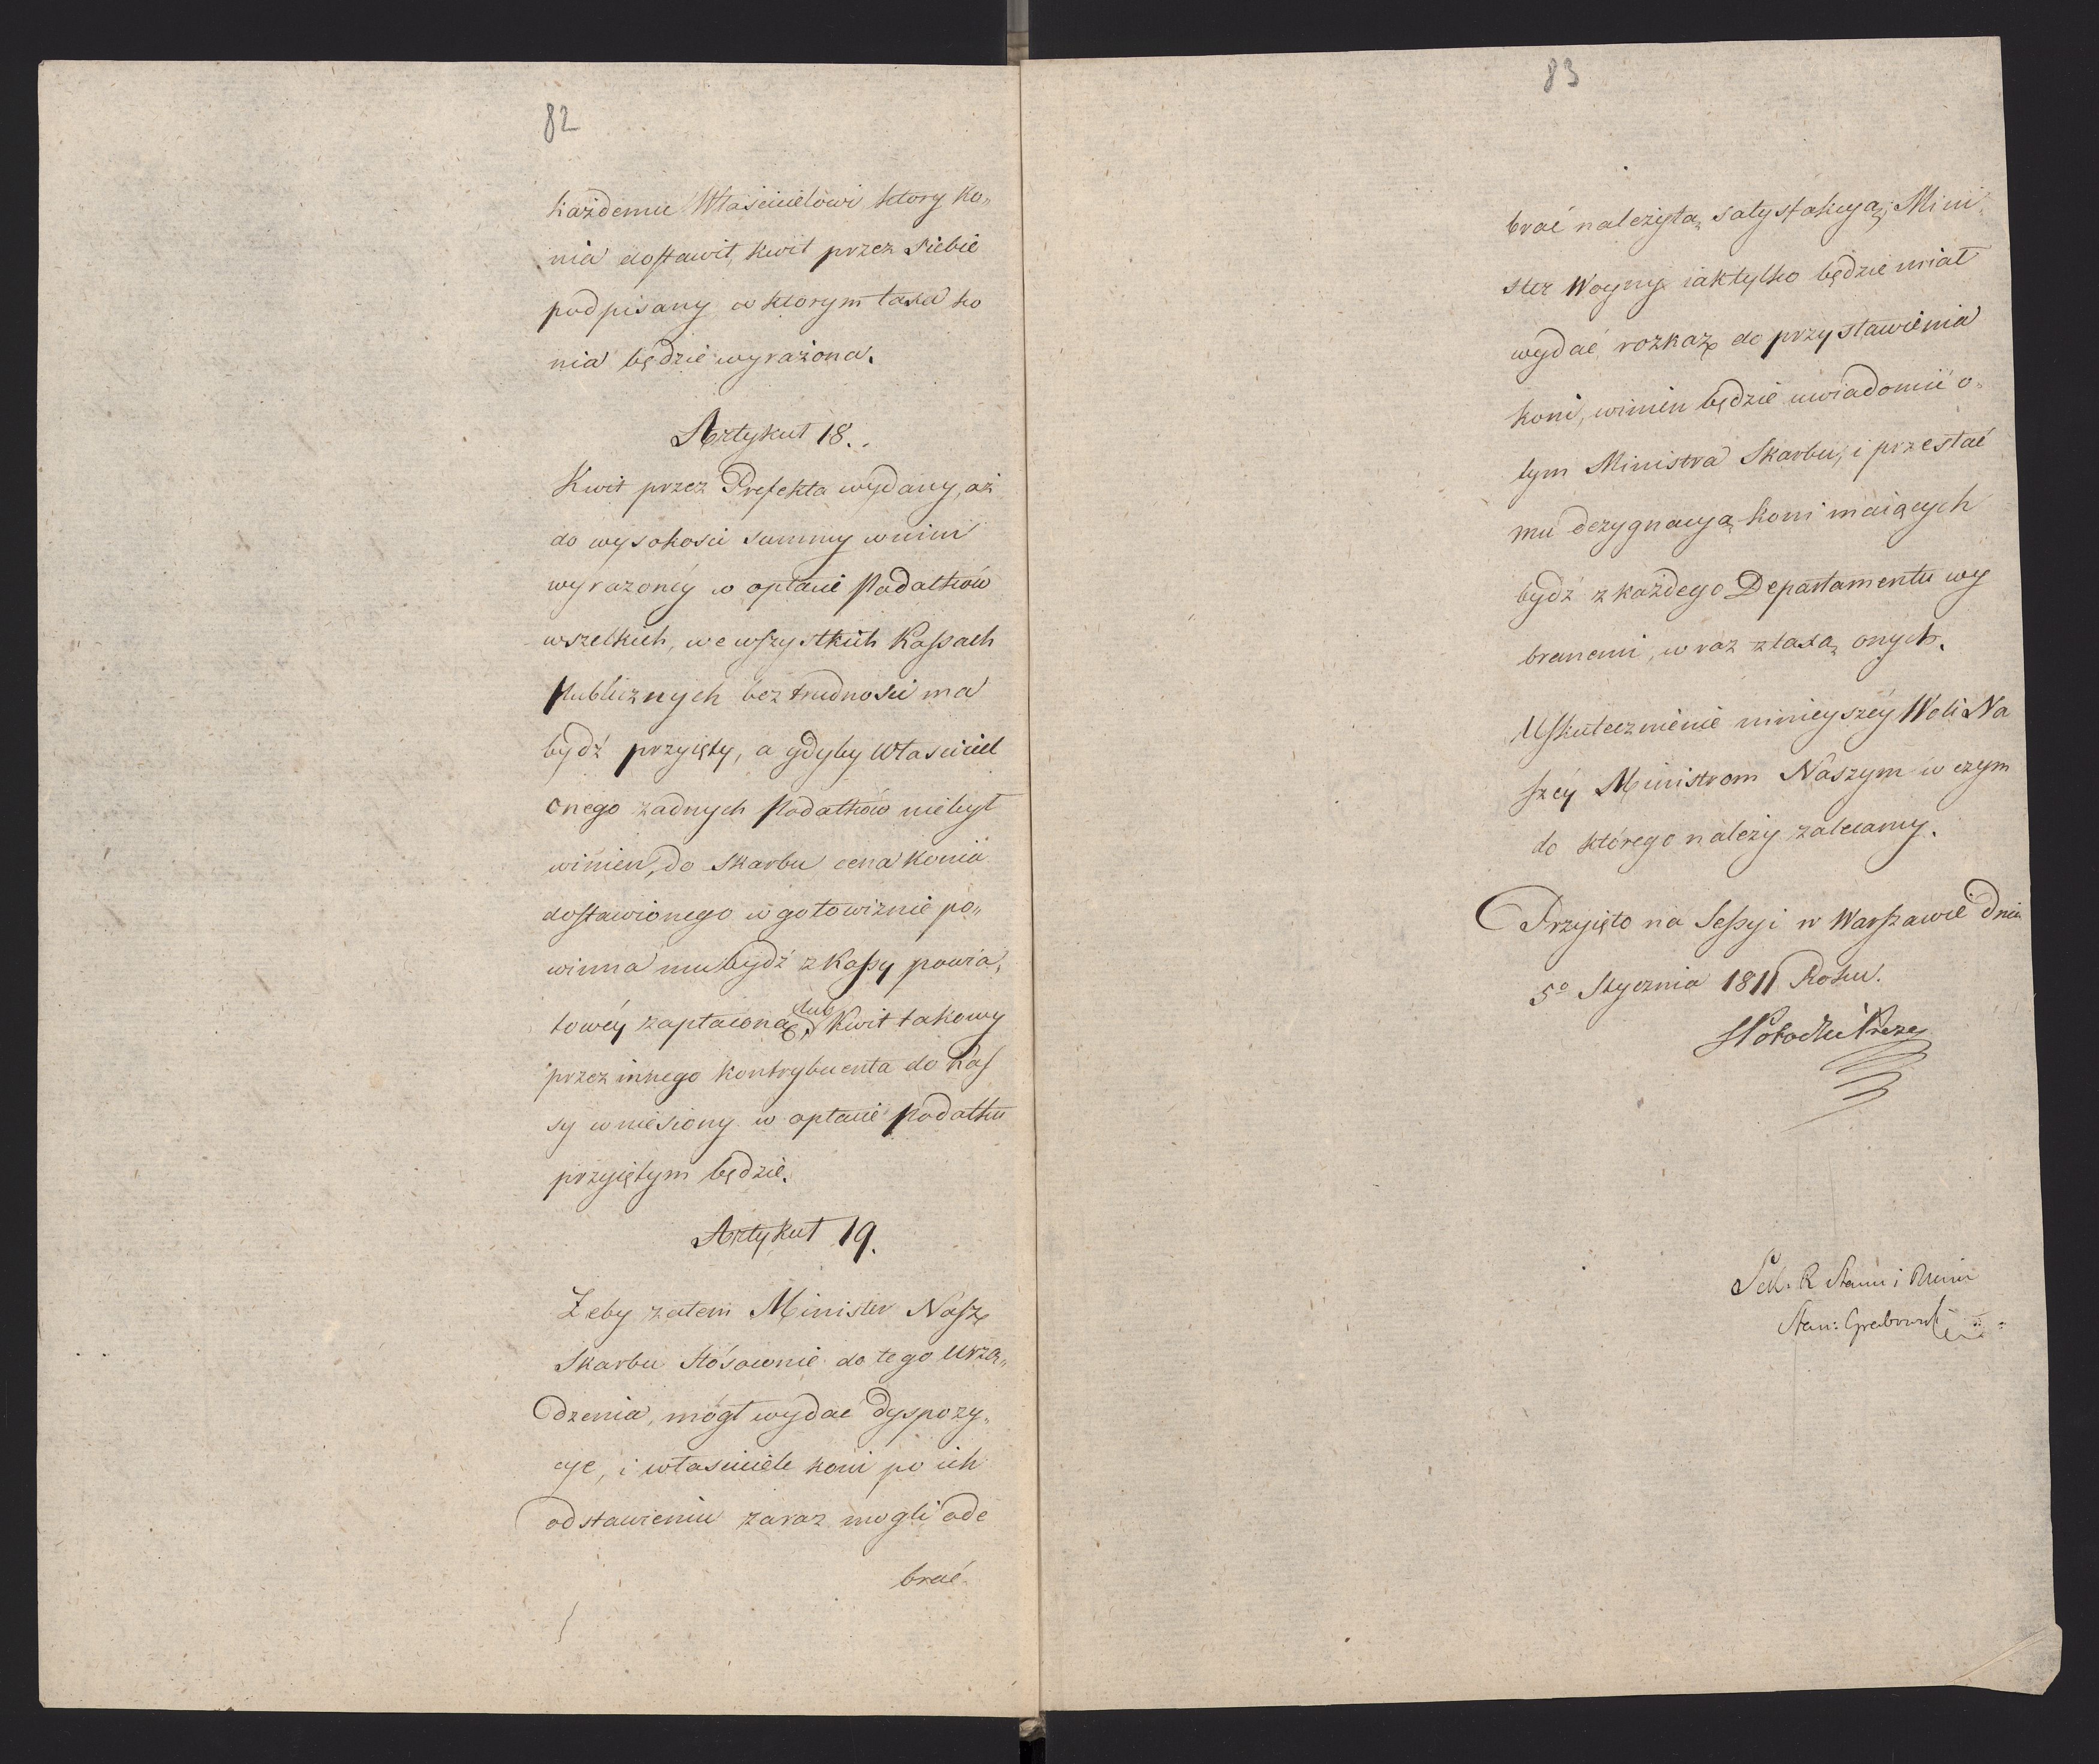 82
każdemu Właścicielowi ktory ko„
nia dostawił, kwit przez siebie
podpisany w ktorym taxa ko
nia będzie wyrażona.
Artykuł 18.
Kwit przez Prefekta wydany, aż
do wysokości summy w nim
wyrazonéy w opłacie Podatków
wszelkich, we wszystkich Kassach
Publicznych bez trudności ma
bydź przyięty, a gdyby Właściciel
onego żadnych Podatków niebył
winien, do Skarbu cena konia
dostawionego w gotowiznie po„
winna mu bydź z Kassy powia„
towéy zapłacona, lub Kwit takowy
przez innego kontrybuenta do Kas
sy wniesiony w opłacie Podatku
przyiętym będzie.
Artykuł 19.
Żeby zatem Minister Nasz
Skarbu Stósownie do tego Urzą„
dzenia, mógł wydać dyspozy„
cye, i właściciele koni po ich
odstawieniu zaraz mogli ode
brać
83
brać należytą satysfakcyą; Mini„
ster Woyny iak tylko będzie miał
wydać rozkaz do przystawienia
koni, winien będzie uwiadomić o„
tym Ministra Skarbu, i przesłać
mu dezygnacyą koni maiących
bydź z każdego Departamentu wy
branemi, wraz z taxą onych.
Uskutecznienie ninieyszéy Woli Na
széy Ministrom Naszym w czym
do którego należy zalecamy.
Przyięto na Sessyi w Warszawie dnia
5º Stycznia 1811 Roku.
SPotocki Prezes
Sek. R Stanu i Minis
Stan: Grabowski